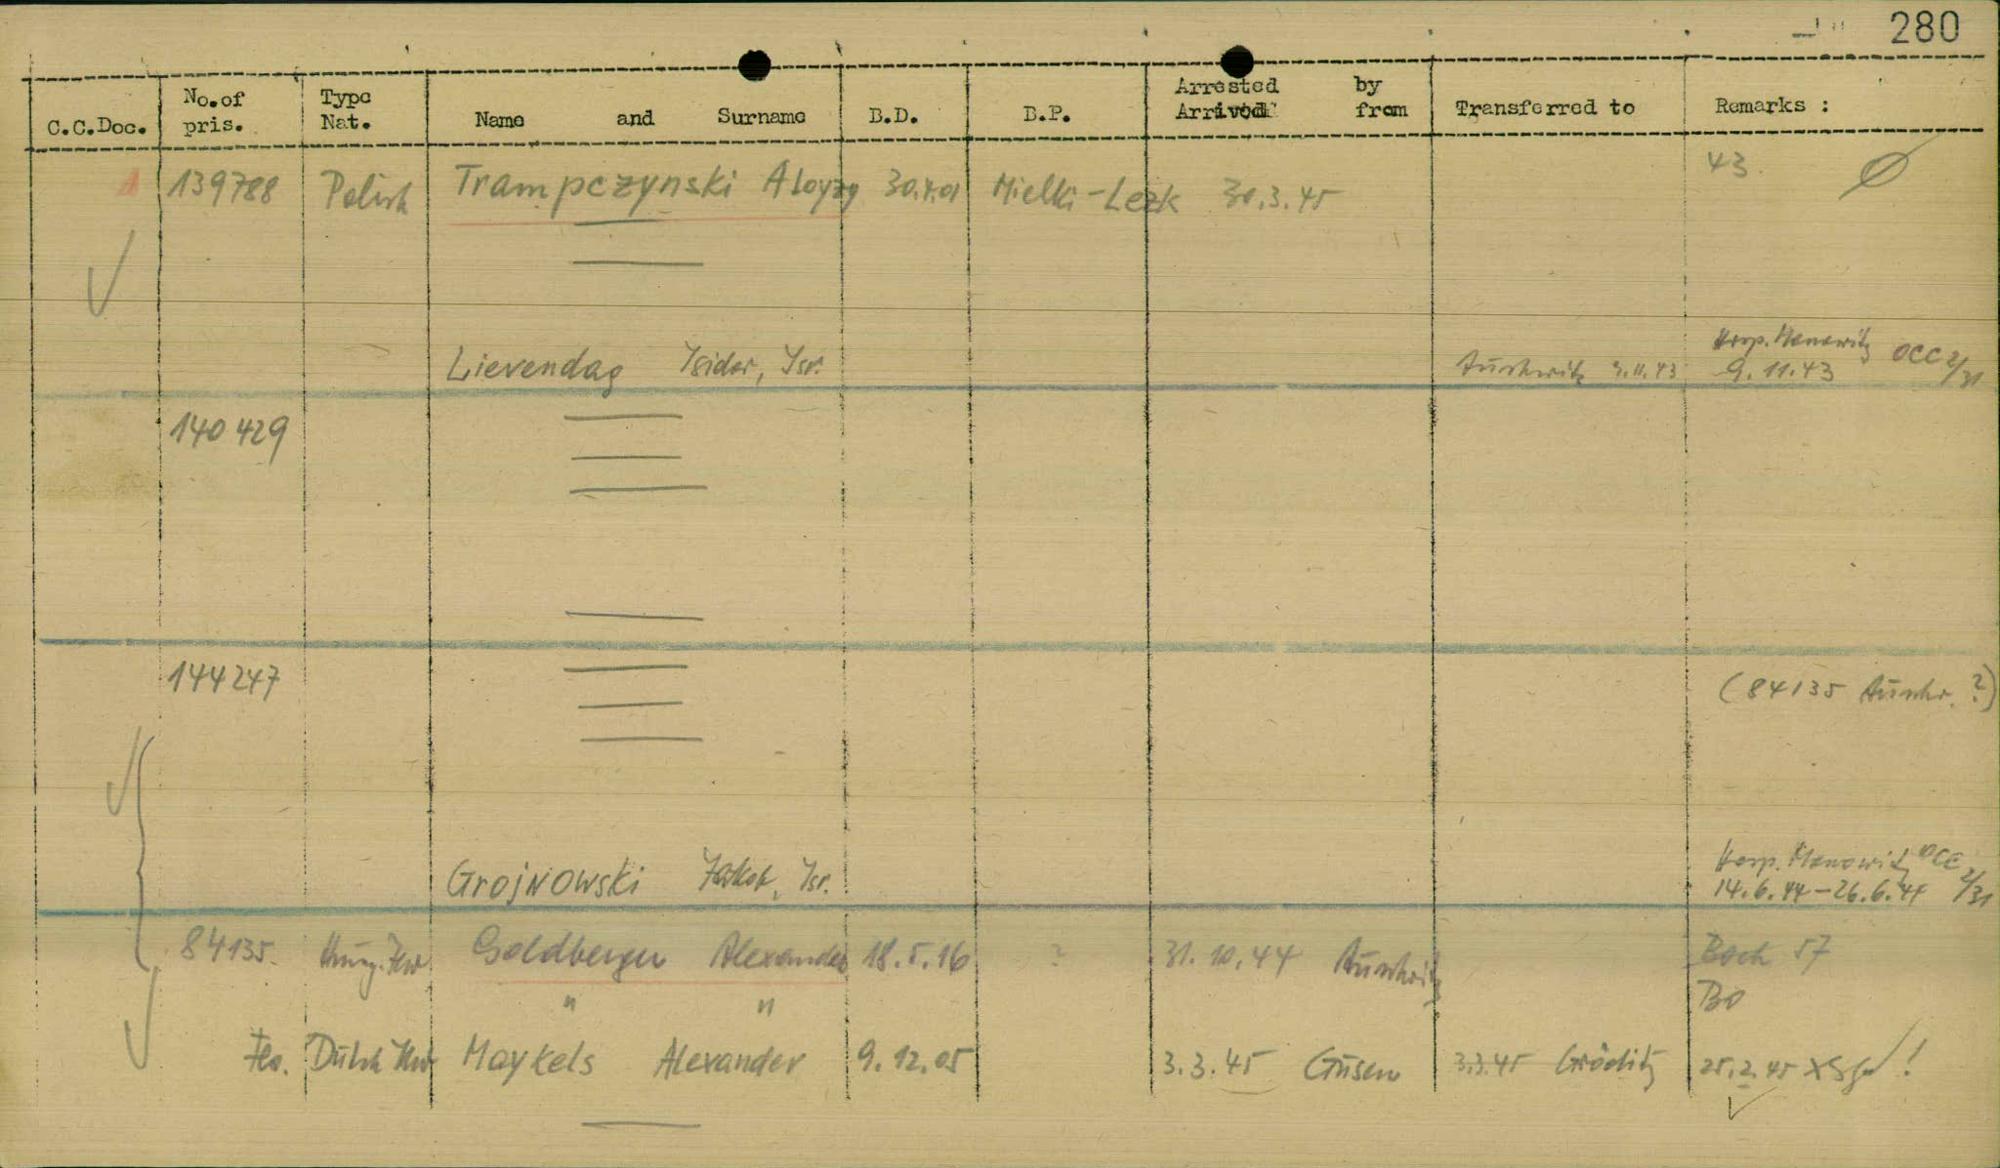 280
C.C.Doc. No. of pris. Type Nat. Name and Surname B.D. B.P. Arrested by Arrived from Transferred to Remarks :
43
139788 Polish Trampczynski Aloyzy 30.3.45
Hosp. Monowitz
Lievendag Isidor, Isr. Auschwitz 9.11.43 9.11.43 OCC 2/31
140429
144247 (84135 Auschw. ?)
Hosp. Monowitz OCC 2/31
Grojnowski Jakob, Isr. 14.6.44-26.6.44
84135. Hung. Jew Goldberger Alexander 18.5.16 ? 31.10.44 Auschwitz 57
" " Bo
Flo. Dutch Jew Maykels Alexander 9.12.05 3.3.45 Gusen 3.3.45 Gröditz 25.2.45 !